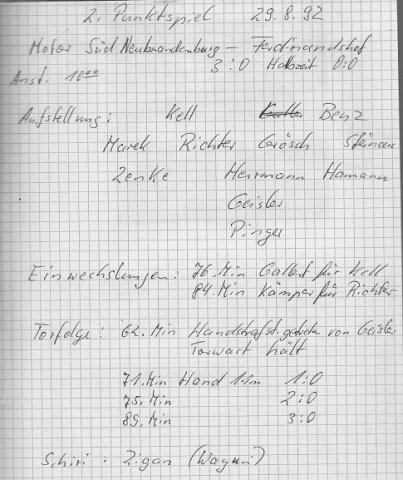 2. Punktspiel 29.8.92
Motor Süd Neubrandenburg – Ferdinandshof
Anst. 10⁰⁰ 3:0 Halbzeit 0:0
Aufstellung: Kell Benz
Marek Richter Grösch Steinau
Zenke Herrmann Hamann
Geisler
Pinger
Einwechslungen: 76. Min Galbert für Kell
84. Min Kämper für Richter
Torfolge: 62. Min Handstrafst. getreten von Geisler
Torwart hält
71. Min Hand 11m 1:0
75. Min 2:0
85. Min 3:0
Schiri: Zigan